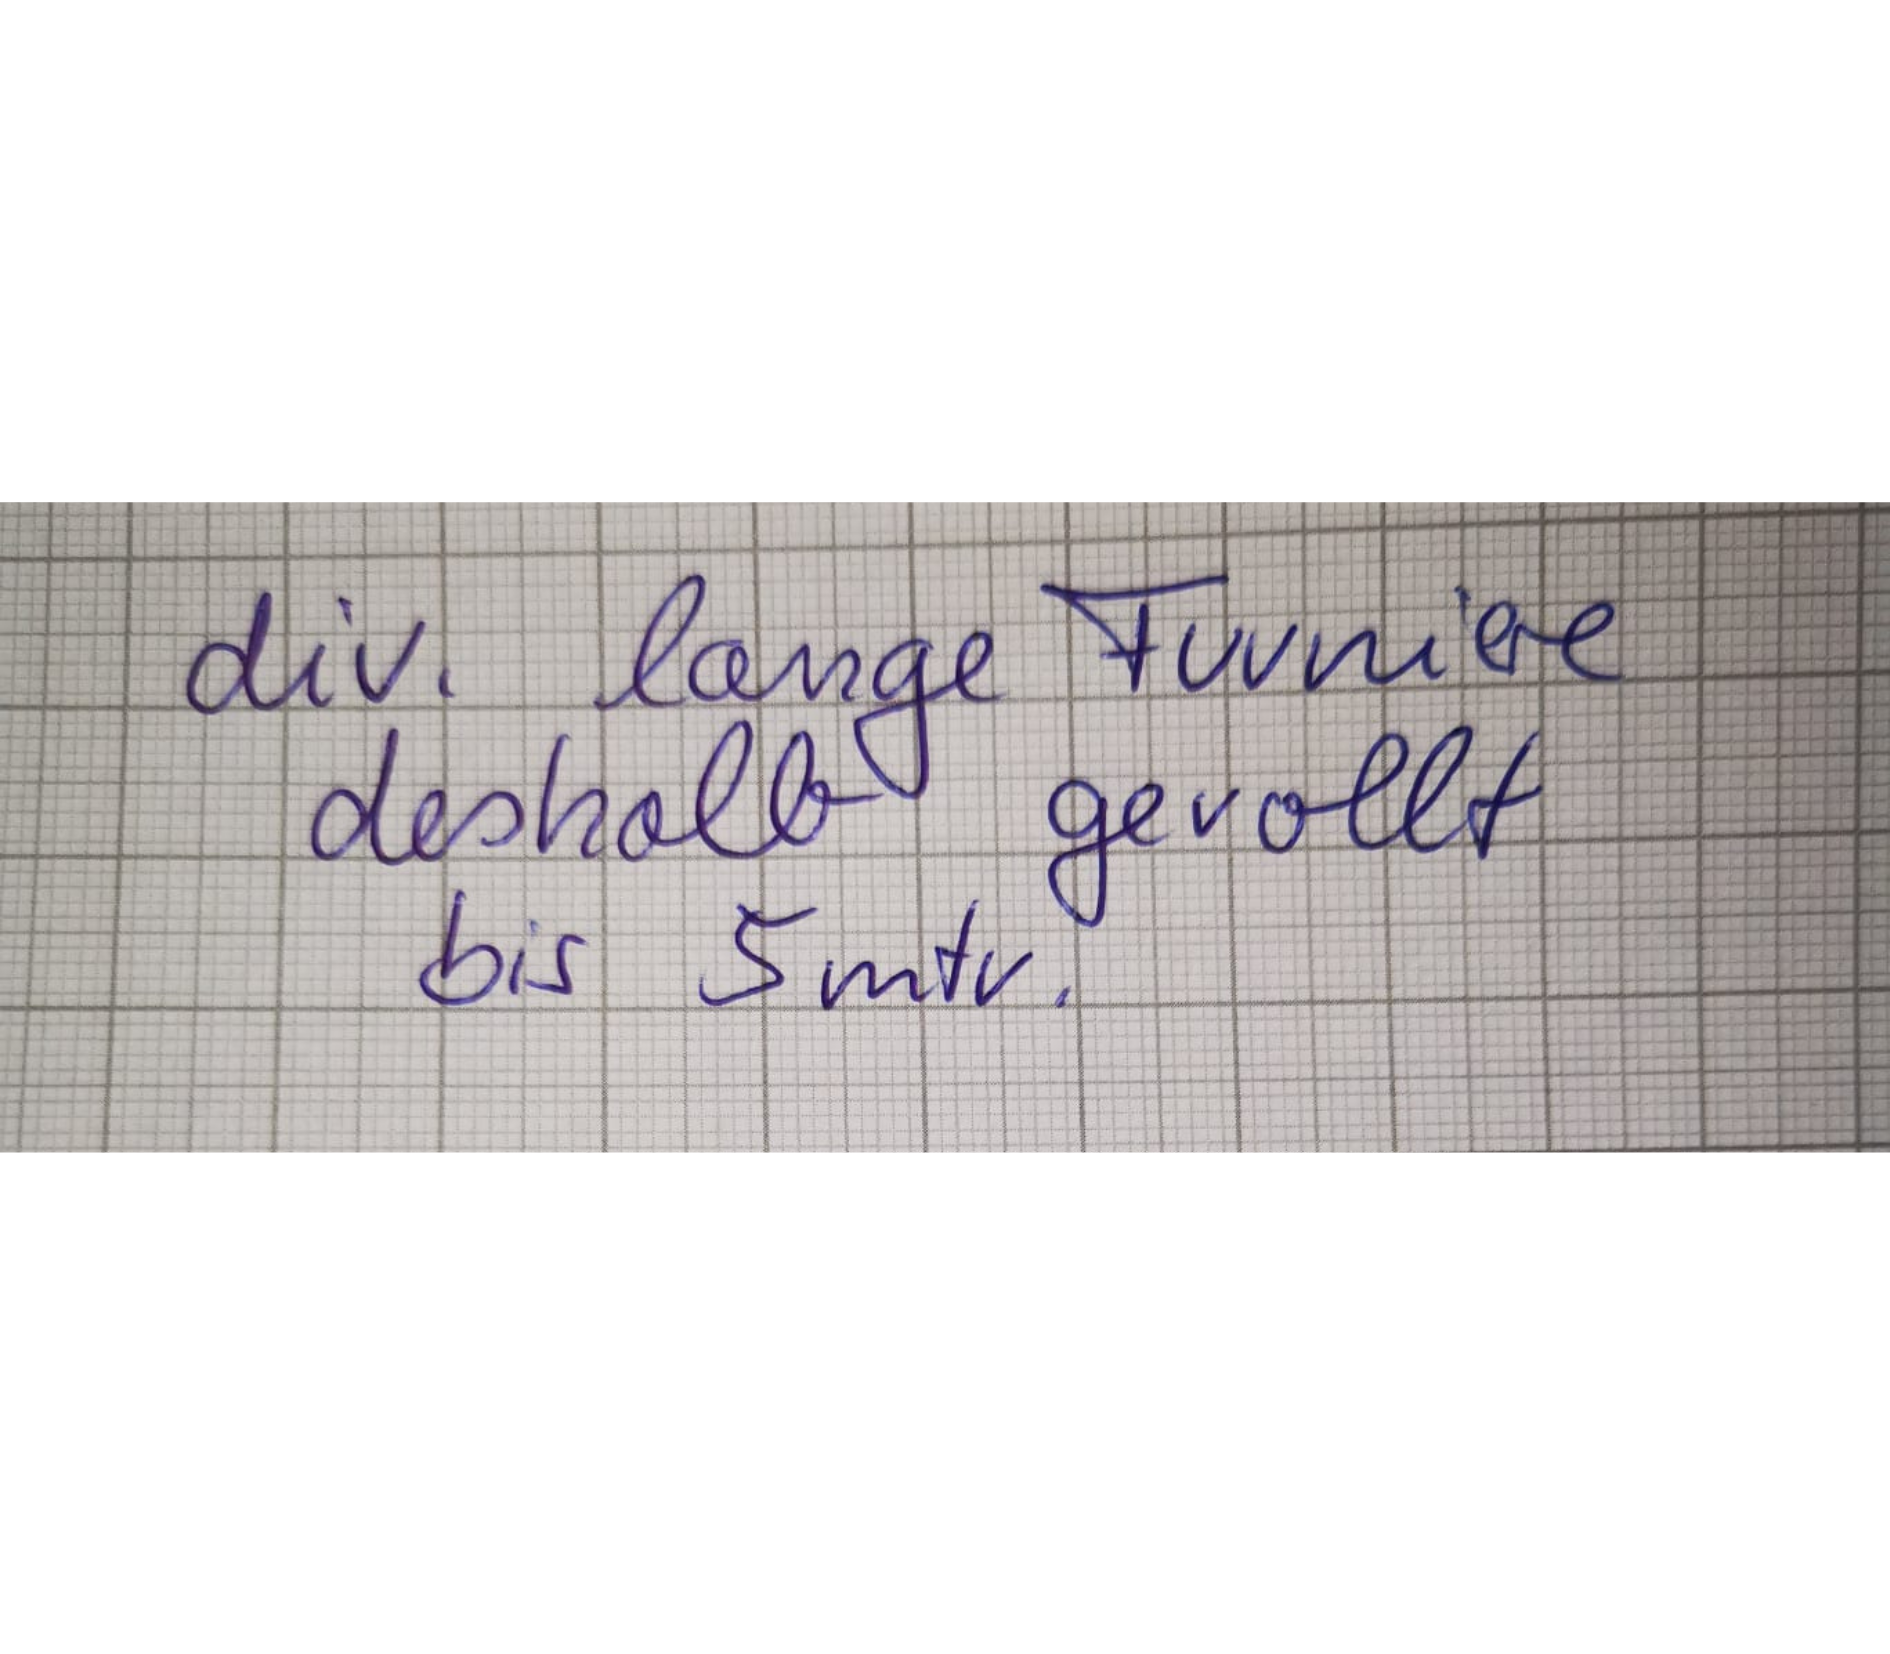 div. lange Furniere
deshalb gerollt
bis 5 mtr.